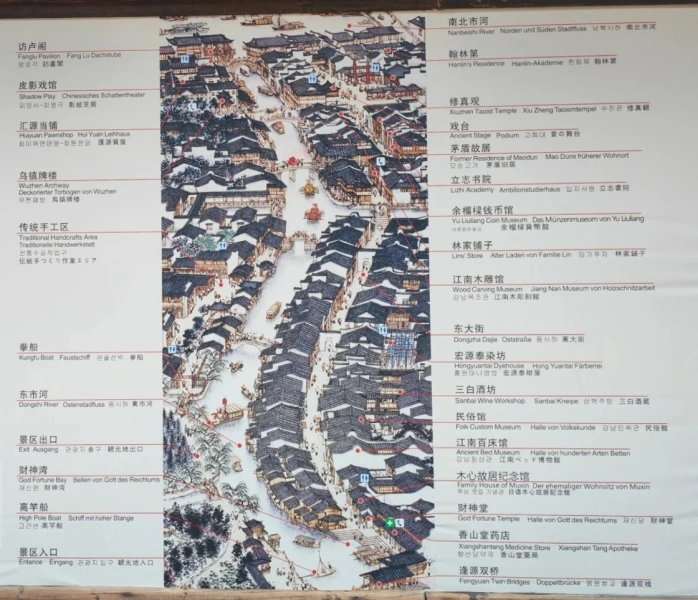 访卢阁
Fanglu Pavilion Fang Lu Dachstube
方卢阁 訪盧閣
皮影戏馆
Shadow Play Chinesisches Schattentheater
影絵芝居
汇源当铺
Huiyuan Pawnshop Hui Yuan Leihhaus
乌镇牌楼
Wuzhen Archway
Deckorierter Torbogen von Wuzhen
烏鎮牌楼
传统手工区
Traditional Handcrafts Area
Traditionelle Handwerkstatt
전통수공작업구
伝統手つくり作業エリア
拳船
Kungfu Boat Faustschiff 拳船
东市河
Dongshi River Ostenstadtfluss 동시하 東市河
景区出口
Exit Ausgang 관광지출구 観光地出口
财神湾
God Fortune Bay Beilen von Gott des Reichtums
재신만 財神湾
高竿船
High Pole Boat Schiff mit hoher Stange
고간선 高竿船
景区入口
Entance Eingang 관광지입구 観光地入口
南北市河
Nanbeishi River Norden und Süden Stadtfluss 남북시하 南北市河
翰林第
Hanlin's Residence Hanlin-Akademie 한림제 翰林第
修真观
Xiuzhen Taoist Temple Xiu Zheng Taoismtempel 수진관 修真観
戏台
Ancient Stage Podium 고희대 昔の舞台
茅盾故居
Former Residence of Maodun Mao Duns früherer Wohnort
茅盾旧居
立志书院
Lizhi Academy Ambitionstudierhaus 입지서원 立志書院
余榴梁钱币馆
Yu Liuliang Coin Museum Das Münzenmuseum von Yu Liuliang
余榴梁貨幣館
林家铺子
Lins' Store Alter Laden von Familie Lin 林家鋪子
江南木雕馆
Wood Carving Museum Jiang Nan Museum von Holzschnitzarbeit
강남목조관 江南木彫刻館
东大街
Dongzha Dajie Oststraße 동시하 東大街
宏源泰染坊
Hongyuantai Dyehouse Hong Yuantai Färberrei
宏源泰紺屋
三白酒坊
Sanbai Wine Workshop Sanbai Kneipe 삼백주방 三白酒蔵
民俗馆
Folk Custom Museum Halle von Volkakunde 강남민속관 民俗館
江南百床馆
Ancient Bed Museum Halle von hunderten Arten Betten
강남침상관 江南ベッド博物館
木心故居纪念馆
Family House of Muxin Der ehemaliger Wohnsitz von Muxin
日语木心故居記念館
财神堂
God Fortune Temple Halle von Gott des Reichtums 재신당 財神堂
香山堂药店
Xiangshantang Medicine Store Xiangshan Tang Apotheke
향산당약국 香山堂薬局
逢源双桥
Fengyuan Twin Bridges Doppeltbrücke 봉원쌍교 逢源双橋